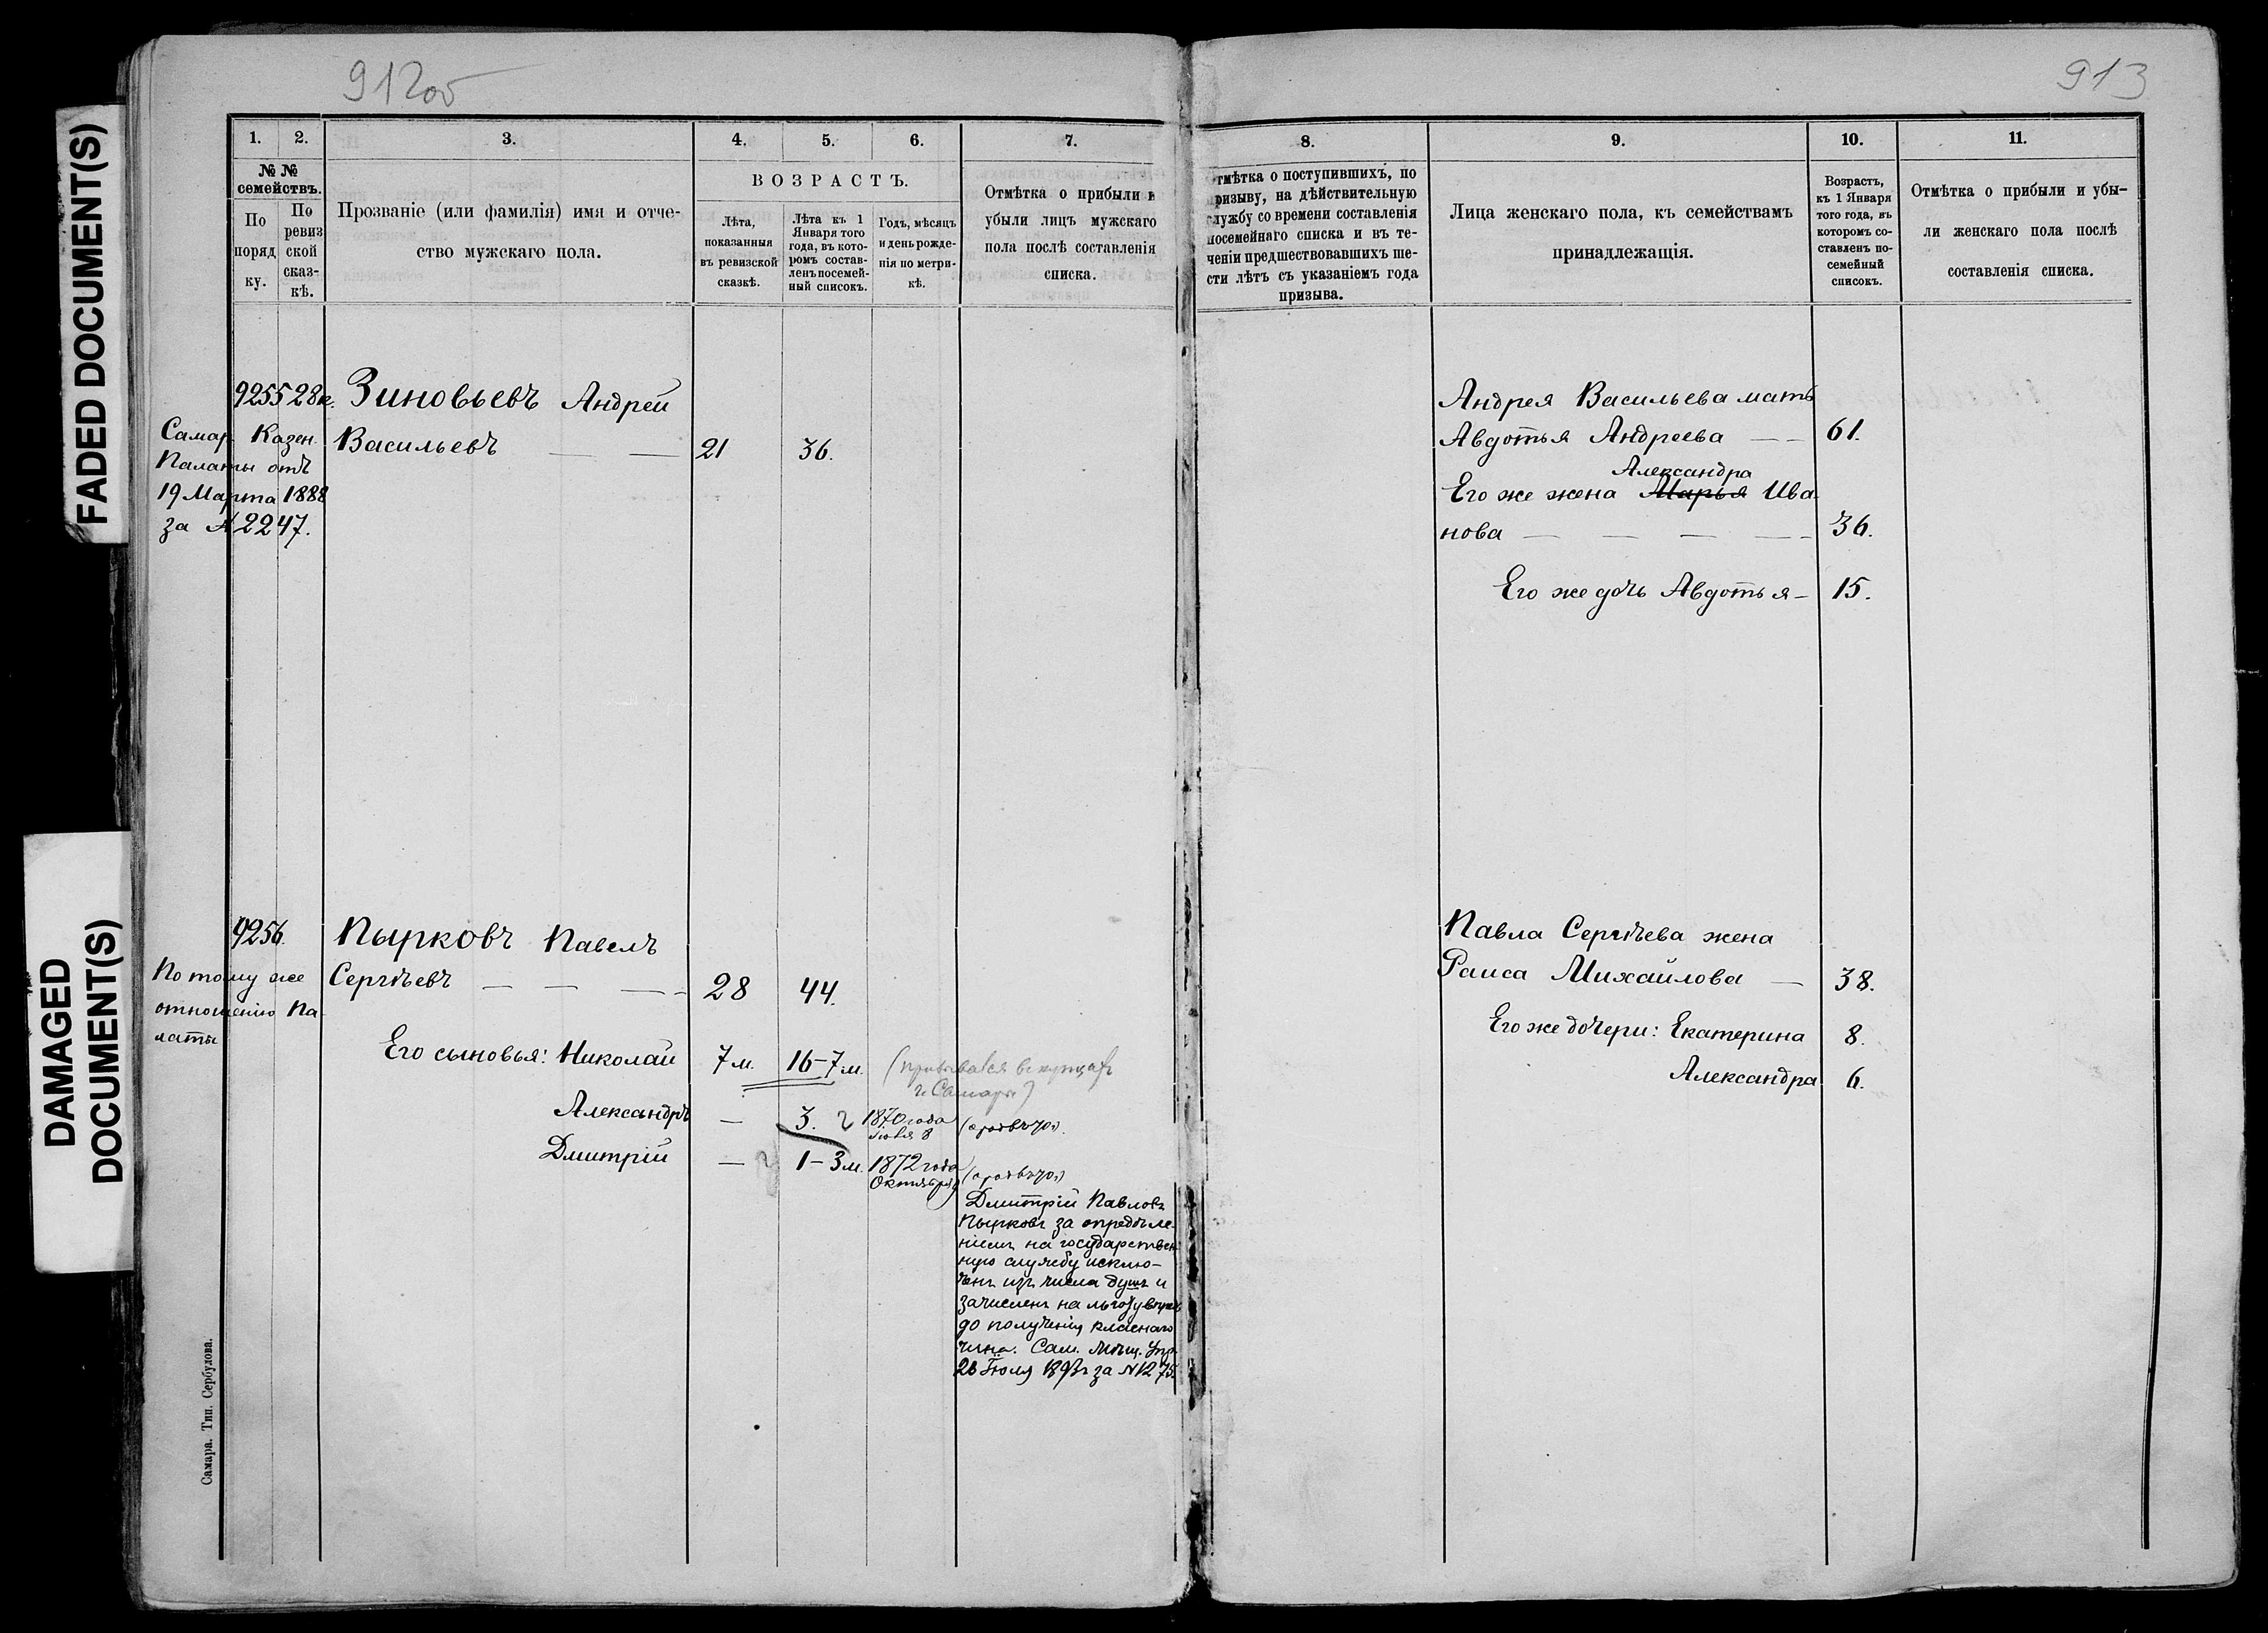 912об
913
FADED DOCUMENT(S)
DAMAGED
DOCUMENT(S)
1.
2.
3.
4.
5.
6.
7.
№ №
семействъ.
По
поряд
ку.
По
ревиз
ской
сказ-
кѣ.
Прозваніе (или фамилія) имя и отче-
ство мужскаго пола.
ВОЗРАСТЪ.
Лѣта,
показанныя
въ ревизской
сказкѣ.
Лѣта къ 1
Января того
года, въ кото-
ромъ состав-
ленъ посемей-
ный списокъ.
Годъ, мѣсяцъ
и день рожде-
нія по метри-
кѣ.
Отмѣтка о прибыли и
убыли лицъ мужскаго
пола послѣ составленія
списка.
9255 28к. Зиновьевъ Андрей
Васильевъ — — 21 36.
Самар. Казен.
Палаты отъ
19 Марта 1888
за № 2247.
9256. Пырковъ Павелъ
Сергѣевъ — — — 28 44.
По тому же
отношенію Па-
латы
Его сыновья: Николай 7 м. 16-7 м. (
г. Самары)
Александръ — 3. 1870 года
8
Дмитрій — 1-3 м. 1872 года
Октября
Дмитрій Павловъ
Пырковъ за опредѣле-
ніемъ на государствен
ную службу исклю-
ченъ изъ числа душъ и
зачисленъ на льготу
до полученія класнаго
чина. Сам. Мѣщ. Упр.
Іюля за №
Самара. Тип. Сербулова.
8.
9.
10.
11.
тмѣтка о поступившихъ, по
ризыву, на дѣйствительную
лужбу со времени составленія
посемейнаго списка и въ те-
ченіи предшествовавшихъ ше-
сти лѣтъ съ указаніемъ года
призыва.
Лица женскаго пола, къ семействамъ
принадлежащія.
Возрастъ,
къ 1 Января
того года, въ
которомъ со-
ставленъ по-
семейный
списокъ.
Отмѣтка о прибыли и убы-
ли женскаго пола послѣ
составленія списка.
Андрея Васильева мать
Авдотья Андреева — — 61.
Александра
Его же жена Марья Ива-
нова — — — — 36.
Его же дочь Авдотья - 15.
Павла Сергѣева жена
Раиса Михайлова — 38.
Его же дочери: Екатерина 8.
Александра 6.